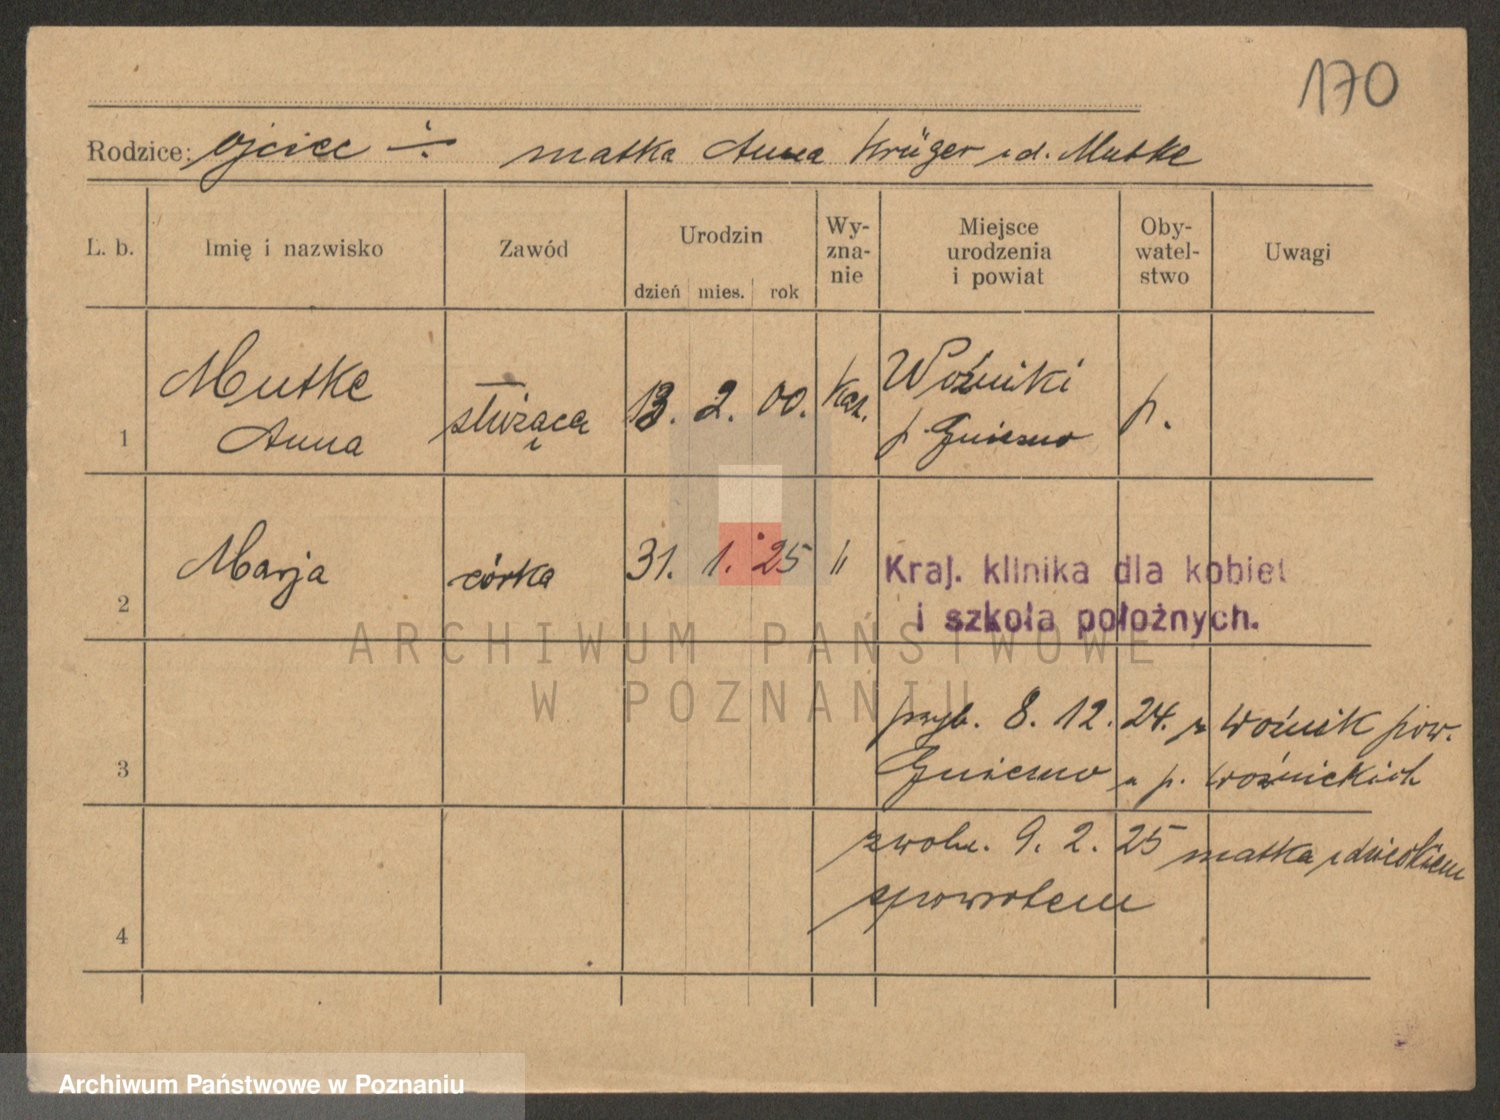 170
Rodzice: ojciec ÷ matka Anna Krüger z d. Mutke
L. b. Imię i nazwisko Zawód Urodzin dzień mies. rok Wy-zna-nie Miejsce urodzenia i powiat Oby-watel-stwo Uwagi
1 Mutke Anna służąca 13. 2. 00. kat. Woźniki p. Gniezno p.
2 Marja córka 31. 1. 25 " Kraj. klinika dla kobiet
i szkoła położnych.
ARCHIWUM PAŃSTWOWE
W POZNANIU
3 przyb. 8. 12. 24. z Woźnik pow.
Gniezno u p. Woźnickich
zwoln. 9. 2. 25 matka z dzieckiem
4 spowrotem
Archiwum Państwowe w Poznaniu